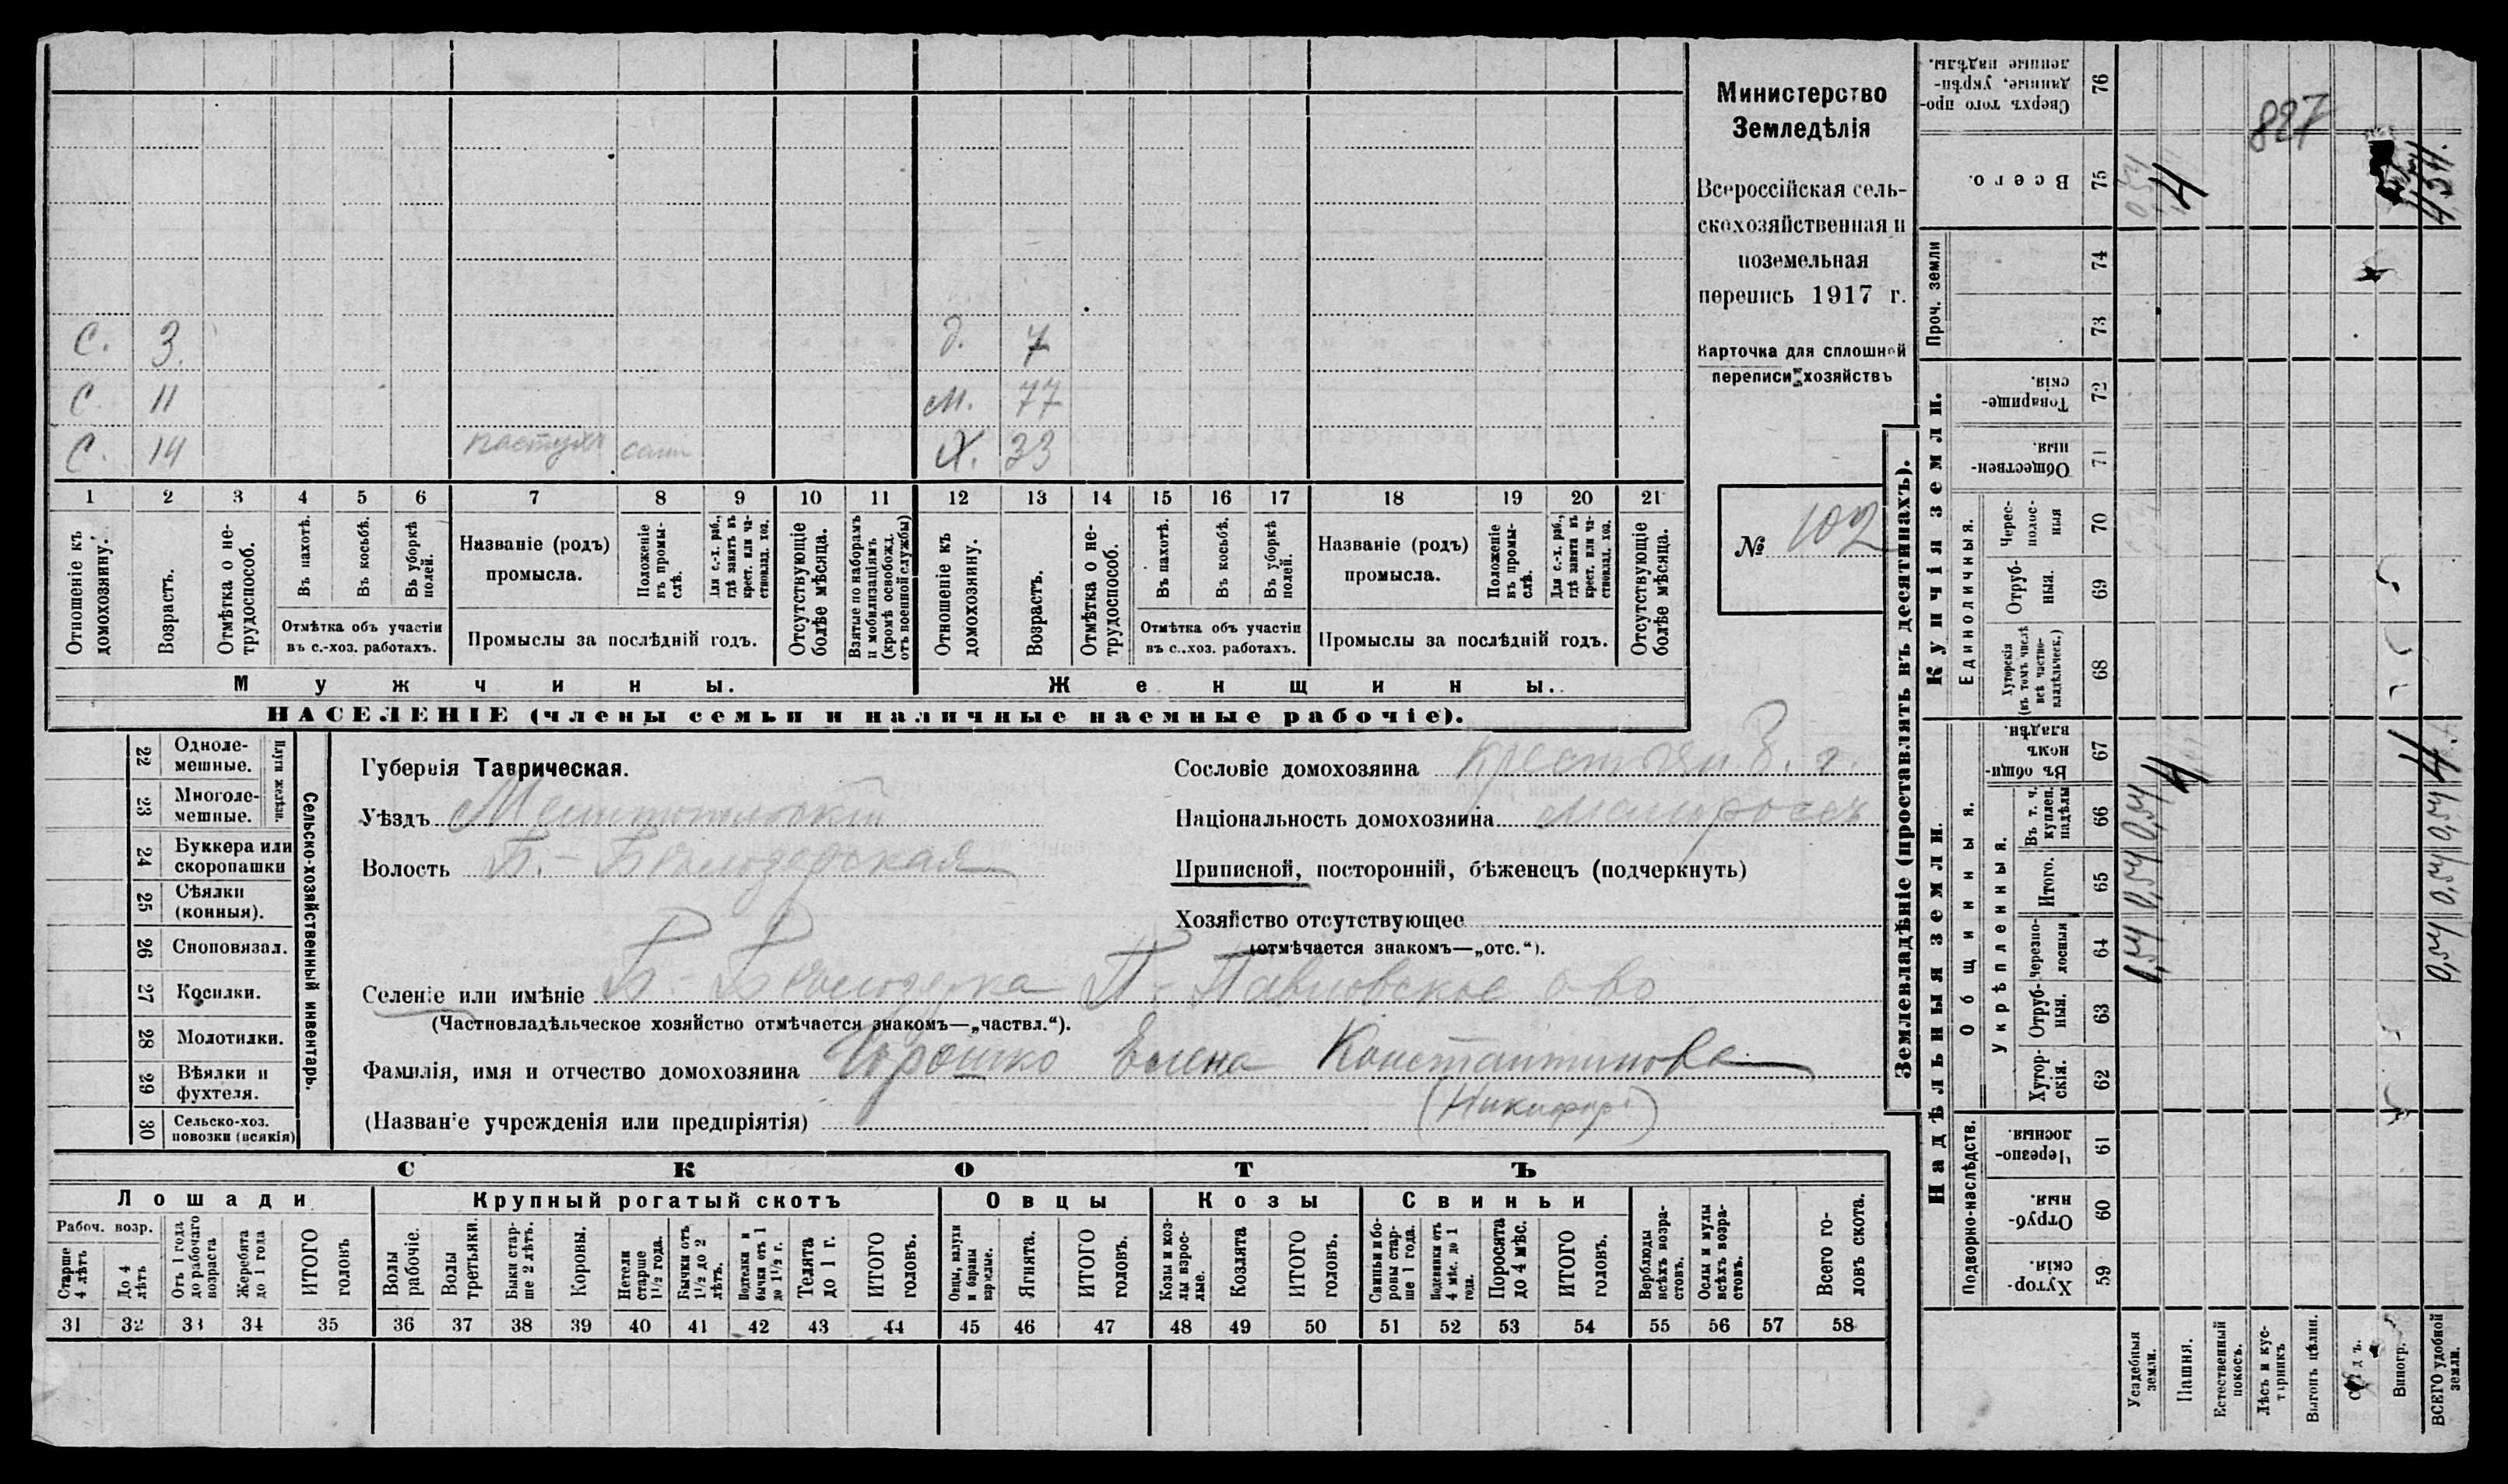 Министерство
Земледѣлія
Всероссійская сель-
скохозяйственная и
поземельная
перепись 1917 г.
Карточка для сплошной
переписи хозяйствъ
№ 102
С. 3. д. 7
С. 11 м. 77
С. 14 пастухъ сам Х. 33
1 2 3 4 5 6 7 8 9 10 11 12 13 14 15 16 17 18 19 20 21
Отношеніе къ домохозяину.
Возрастъ.
Отмѣтка о не-трудоспособ.
Въ пахотѣ.
Въ косьбѣ.
Въ уборкѣ полей.
Отмѣтка объ участіи
въ с.-хоз. работахъ.
Названіе (родъ)
промысла.
Положеніе въ промы-слѣ.
Для с.-х. раб., гдѣ занятъ въ крест. или ча-стновлад. хоз.
Промыслы за послѣдній годъ.
Отсутствующіе болѣе мѣсяца.
Взятые по наборамъ и мобилизаціямъ (кромѣ освобожд. отъ военной службы)
Отношеніе къ домохозяину.
Возрастъ.
Отмѣтка о не-трудоспособ.
Въ пахотѣ.
Въ косьбѣ.
Въ уборкѣ полей.
Отмѣтка объ участіи
въ с..хоз. работахъ.
Названіе (родъ)
промысла.
Положеніе въ промы-слѣ.
Для с.-х. раб., гдѣ занята въ крест. или ча-стновлад. хоз.
Промыслы за послѣдній годъ.
Отсутствующіе болѣе мѣсяца.
Мужчины. Женщины.
НАСЕЛЕНІЕ (члены семьи и наличные наемные рабочіе).
22 Одноле-мешные.
23 Многоле-мешные.
Плуги желѣзн.
24 Буккера или скоропашки
25 Сѣялки (конныя).
26 Сноповязал.
27 Косилки.
28 Молотилки.
29 Вѣялки и фухтеля.
30 Сельско-хоз. повозки (всякія)
Сельско-хозяйственный инвентарь.
Губернія Таврическая.
Уѣздъ Мелитопольскій
Волость Б.-Бѣлозерская
Сословіе домохозяина крестьян
Національность домохозяина малороссъ
Приписной, посторонній, бѣженецъ (подчеркнуть)
Хозяйство отсутствующее
(отмѣчается знакомъ—„отс.“).
Селеніе или имѣніе Б.-Бѣлозерка П-Павловское о-во
(Частновладѣльческое хозяйство отмѣчается знакомъ—„частвл.“).
Фамилія, имя и отчество домохозяина Горошко Елена Константинова
(Названіе учрежденія или предпріятія) (Никифор)
СКОТЪ
Лошади Крупный рогатый скотъ Овцы Козы Свиньи
Рабоч. возр.
Старше 4 лѣтъ
До 4 лѣтъ
Отъ 1 года до рабочаго возраста
Жеребята до 1 года
ИТОГО головъ
Волы рабочіе.
Волы третьяки.
Быки стар-ше 2 лѣтъ.
Коровы.
Нетели старше 1½ года.
Бычки отъ 1½ до 2 лѣтъ.
Подтелки и бычки отъ 1 до 1½ г.
Телята до 1 г.
ИТОГО головъ.
Овцы, валухи и бараны взрослые.
Ягнята.
ИТОГО головъ.
Козы и коз-лы взрос-лые.
Козлята
ИТОГО головъ.
Свиньи и бо-ровы стар-ше 1 года.
Подсвинки отъ 4 мѣс. до 1 года.
Поросята до 4 мѣс.
ИТОГО головъ.
Верблюды всѣхъ возра-стовъ.
Ослы и мулы всѣхъ возра-стовъ.
Всего го-ловъ скота.
31 32 33 34 35 36 37 38 39 40 41 42 43 44 45 46 47 48 49 50 51 52 53 54 55 56 57 58
Землевладѣніе (проставлять въ десятинахъ).
Надѣльныя земли. Купчія земли. Проч. земли
Подворно-наслѣдств.
Общинныя.
Укрѣпленныя.
Единоличныя.
59 Хутор-скія.
60 Отруб-ныя.
61 Черезпо-лосныя.
62 Хутор-скія.
63 Отруб-ныя.
64 Черезпо-лосныя
65 Итого.
66 Въ т. ч. куплен. надѣлы
67 Въ общин-номъ владѣн.
68 Хуторскія (въ томъ числѣ всѣ частно-владѣльческ.)
69 Отруб-ныя.
70 Черес-полос-ныя
71 Обществен-ныя.
72 Товарище-скія.
73
74
75 Всего.
76 Сверхъ того про-данные, укрѣп-ленные надѣлы.
Усадебныя земли. 0,54 0,54 0,54
Пашня. 4 4
Естественный покосъ.
Лѣсъ и кус-тарникъ
Выгонъ цѣлин.
Садъ.
Виногр.
ВСЕГО удобной земли. 0,54 0,54 0,54 4 4,54
887